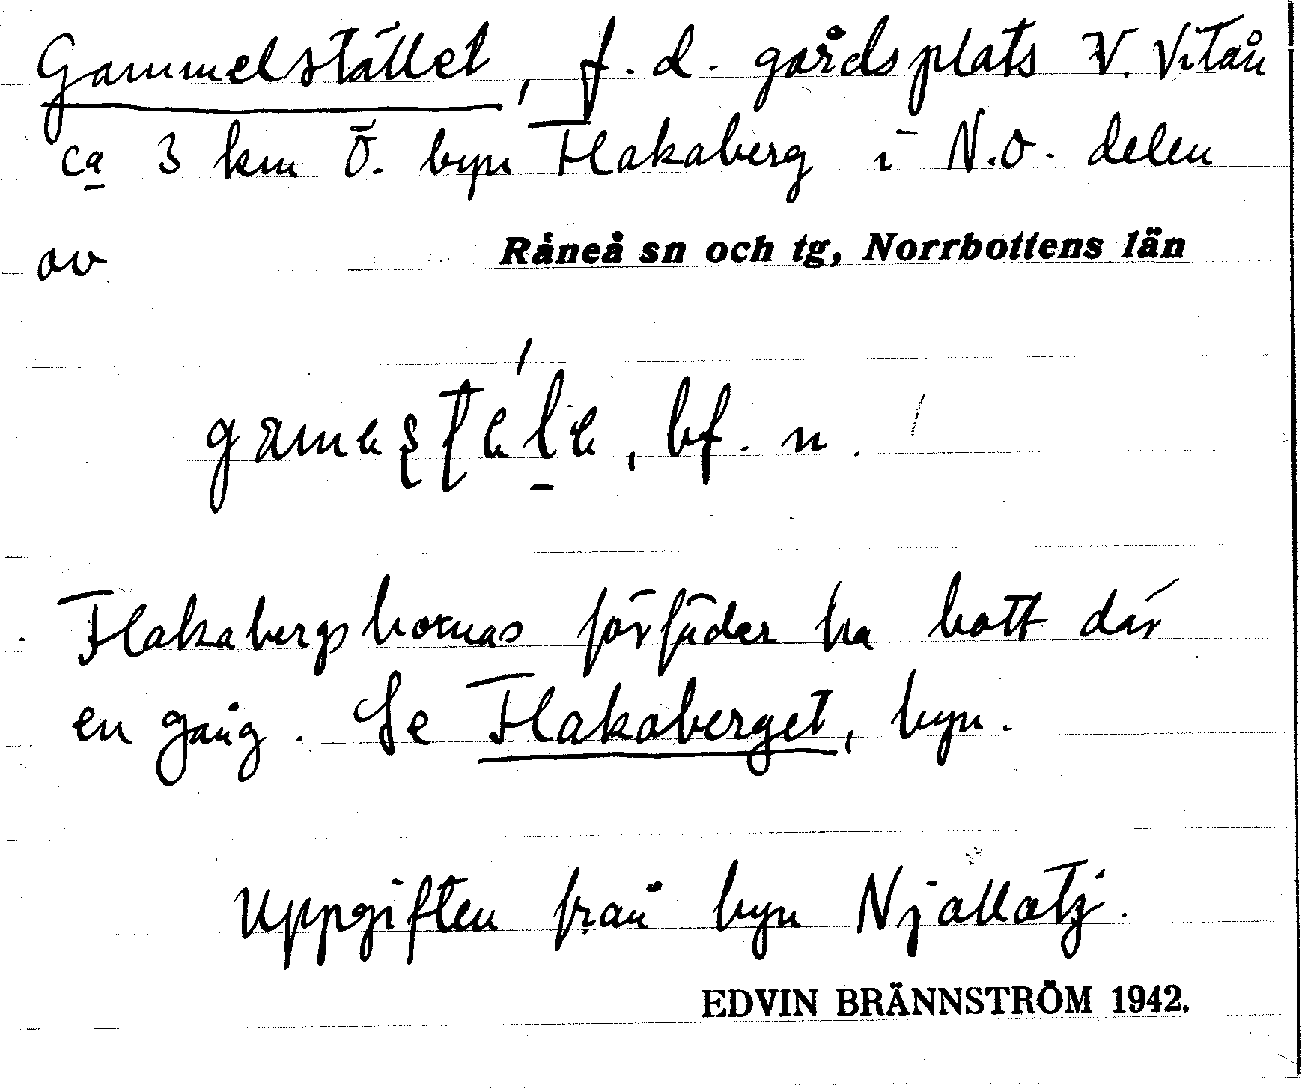 Gammelstället, f. d. gårdsplats V. Vitån
ca 3 km Ö. byn Flakaberg i N.O. delen
av Råneå sn och tg, Norrbottens län
bf. n.
Flakabergsbornas förfäder ha bott där
en gång. Se Flakaberget, byn.
Uppgiften från byn Njallatj.
EDVIN BRÄNNSTRÖM 1942.